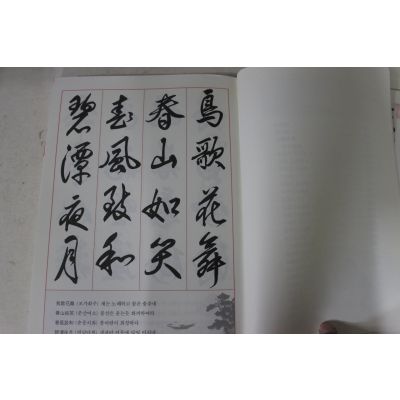 鳥歌花舞
春山如笑
春風致和
碧潭夜月
鳥歌花舞 (조가화무) 새는 노래하고 꽃은 춤추네
春山如笑 (춘산여소)
春風致和 (춘풍치화) 봄바람이 화창하다
碧潭夜月